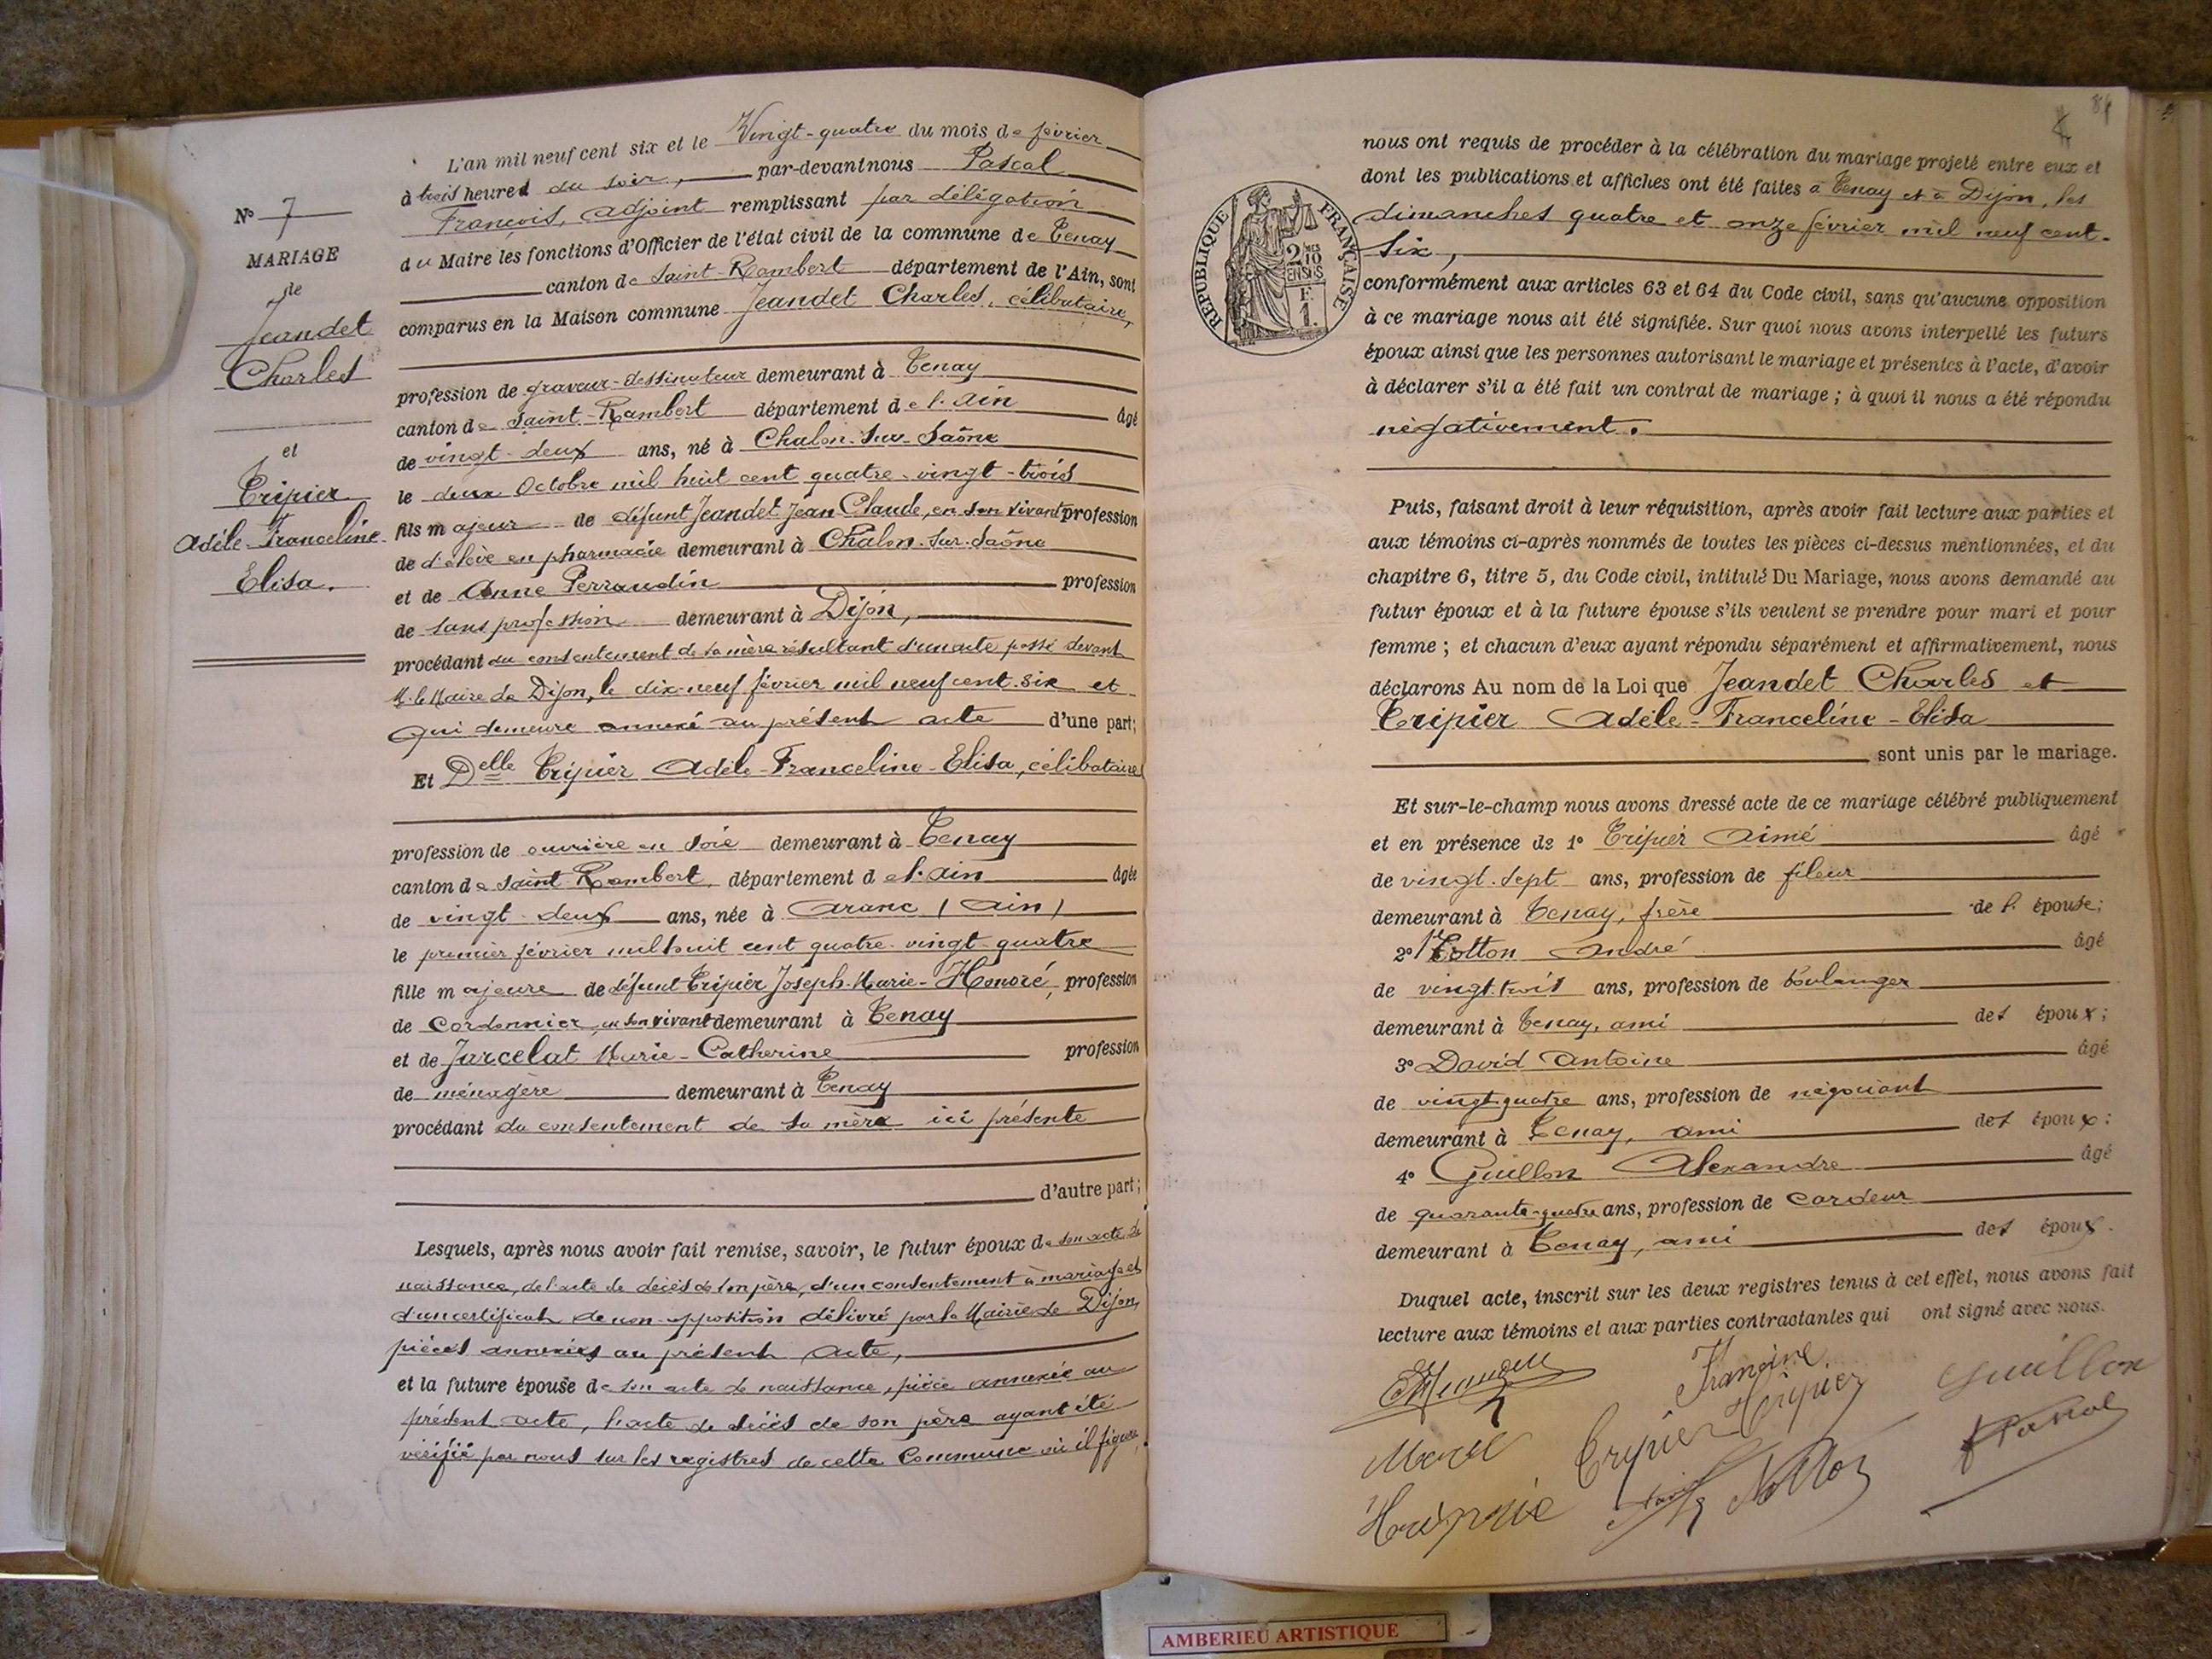 N° 7
MARIAGE
de
Jeandet
Charles
et
Tripier
Adèle-Franceline
Elisa.
L'an mil neuf cent six et le Vingt-quatre du mois de février
à trois heures du soir, par-devant nous Pascal
François, adjoint remplissant par délégation
du Maire les fonctions d'Officier de l'état civil de la commune de Tenay
canton de Saint-Rambert département de l'Ain, sont
comparus en la Maison commune Jeandet Charles, célibataire,
profession de graveur-dessinateur demeurant à Tenay
canton de Saint-Rambert département de l'Ain âgé
de vingt-deux ans, né à Chalon-sur-Saône
le deux Octobre mil huit cent quatre-vingt-trois
fils majeur de défunt Jeandet Jean Claude, en son vivant profession
de d'élève en pharmacie demeurant à Chalon-sur-Saône
et de Anne Perraudin profession
de sans profession demeurant à Dijon,
procédant du consentement de sa mère résultant d'un acte passé devant
M. le Maire de Dijon, le dix-neuf février mil neuf cent six et
qui demeure annexé au présent acte d'une part;
Et Delle Tripier Adèle-Franceline-Elisa, célibataire
profession de ouvrière en soie demeurant à Tenay
canton de Saint-Rambert, département de l'Ain âgée
de vingt-deux ans, née à Aranc (Ain)
le premier février mil huit cent quatre-vingt-quatre
fille majeure de défunt Tripier Joseph-Marie-Honoré, profession
de cordonnier, en son vivant demeurant à Tenay
et de Jarcelat Marie-Catherine profession
de ménagère demeurant à Tenay
procédant du consentement de sa mère ici présente
d'autre part;
Lesquels, après nous avoir fait remise, savoir, le futur époux de son acte de
naissance, de l'acte de décès de son père, d'un consentement à mariage et
d'un certificat de non-opposition délivré par la Mairie de Dijon,
pièces annexées au présent acte,
et la future épouse de son acte de naissance, pièce annexée au
présent acte, l'acte de décès de son père ayant été
vérifié par nous sur les registres de cette Commune où il figure.
84
RÉPUBLIQUE FRANÇAISE
2 MES
10
EN SUS
F.
1.
nous ont requis de procéder à la célébration du mariage projeté entre eux et
dont les publications et affiches ont été faites à Tenay et à Dijon, les
dimanches quatre et onze février mil neuf cent-
six,
conformément aux articles 63 et 64 du Code civil, sans qu'aucune opposition
à ce mariage nous ait été signifiée. Sur quoi nous avons interpellé les futurs
époux ainsi que les personnes autorisant le mariage et présentes à l'acte, d'avoir
à déclarer s'il a été fait un contrat de mariage ; à quoi il nous a été répondu
négativement.
Puis, faisant droit à leur réquisition, après avoir fait lecture aux parties et
aux témoins ci-après nommés de toutes les pièces ci-dessus mentionnées, et du
chapitre 6, titre 5, du Code civil, intitulé Du Mariage, nous avons demandé au
futur époux et à la future épouse s'ils veulent se prendre pour mari et pour
femme ; et chacun d'eux ayant répondu séparément et affirmativement, nous
déclarons Au nom de la Loi que Jeandet Charles et
Tripier Adèle-Franceline-Elisa
sont unis par le mariage.
Et sur-le-champ nous avons dressé acte de ce mariage célébré publiquement
et en présence de 1° Tripier Aimé âgé
de vingt-sept ans, profession de fileur
demeurant à Tenay, frère de l'épouse;
2° Notton André âgé
de vingt-trois ans, profession de boulanger
demeurant à Tenay, ami des époux;
3° David Antoine âgé
de vingt-quatre ans, profession de négociant
demeurant à Tenay, ami des époux;
4° Guillon Alexandre âgé
de quarante-quatre ans, profession de cardeur
demeurant à Tenay, ami des époux.
Duquel acte, inscrit sur les deux registres tenus à cet effet, nous avons fait
lecture aux témoins et aux parties contractantes qui ont signé avec nous.
Francine
Tripier
Guillon
Tripier
Notton
AMBERIEU ARTISTIQUE